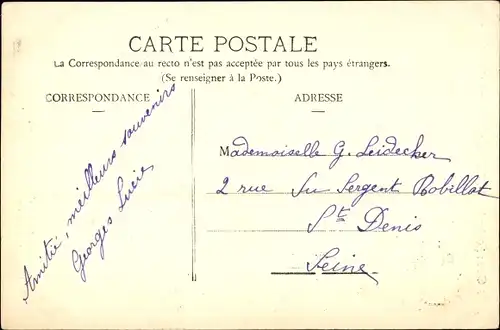 CARTE POSTALE
La Correspondance au recto n'est pas acceptée par tous les pays étrangers.
(Se renseigner à la Poste.)
CORRESPONDANCE
Amitié, meilleurs souvenirs
Georges Lucie
ADRESSE
Mademoiselle G. Leidecker
2 rue du Sergent Bobillot
St Denis
Seine